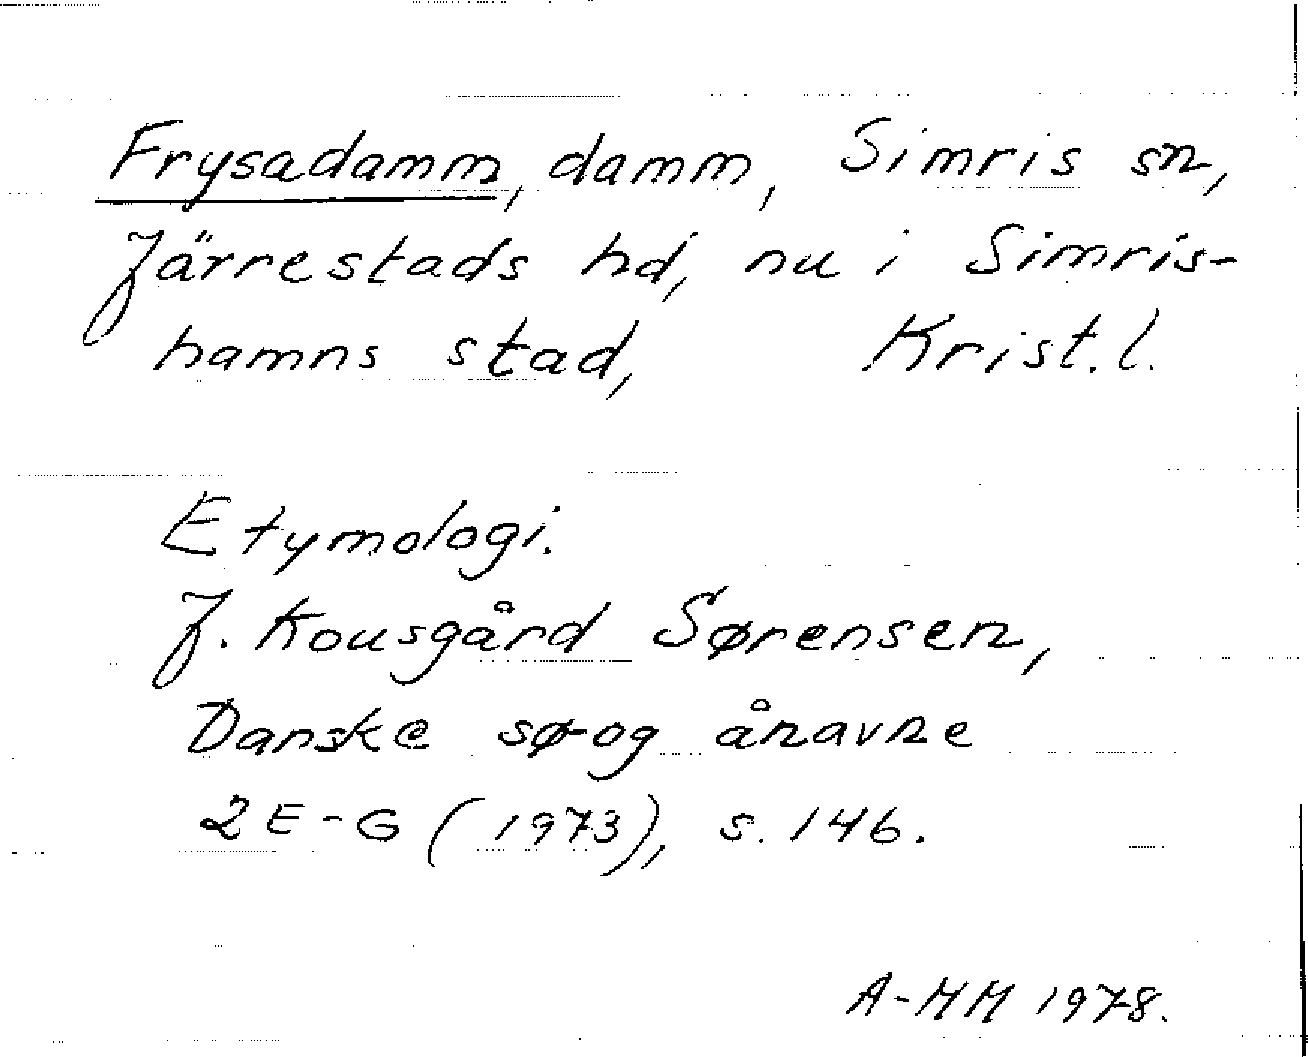 Frysadamm, damm, Simris sn,
Järrestads hd, nu i Simris-
hamns stad, Krist. l.
Etymologi.
J. Kousgård Sørensen,
Danske sø- og ånavne
2 E-G (1973), s. 146.
A-MM 1978.